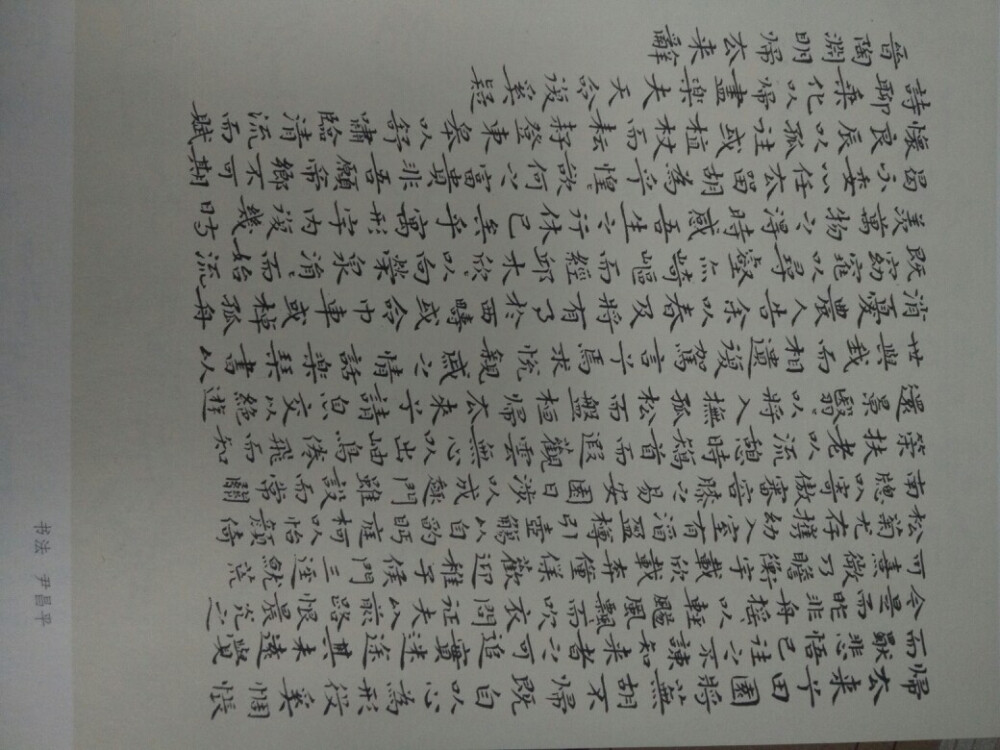 帰去来兮田園將蕪胡不帰既自以心為形役奚惆悵
而獨悲悟已往之不諫知来者之可追實迷途其未遠覺
今是而昨非舟搖〻輕颺風飄〻而吹衣問征夫以前路恨晨光之
熹微乃瞻衡宇載欣載奔僮僕歡迎稚子候門三逕就荒
松菊尤存攜幼入室有酒盈樽引壺觴以自酌眄庭柯以怡顏倚
南牕以寄傲審容膝之易安園日涉以成趣門雖設而常關
策扶老以流憩時矯首而遐觀雲無心以出岫鳥倦飛而知
還景翳〻以將入撫孤松而盤桓帰去来兮請息交以絕遊
世與我而相遺復駕言兮焉求悅親戚之情話樂琴書以
消憂農人告余以春及將有事於西疇或命巾車或棹孤舟
既窈窕以尋壑亦崎嶇而經邱木欣〻以向榮泉涓〻而始流
羨萬物之得時感吾生之行休已矣乎寓形宇內復幾時
曷不委心任去留胡為乎遑〻兮欲何之富貴非吾願帝鄉不可期
懷良辰以孤往或植杖而耘耔登東皋以舒嘯臨清流而賦
詩聊乘化以帰盡樂夫天命復奚疑
晉陶淵明帰去来辭
书法 尹昌平